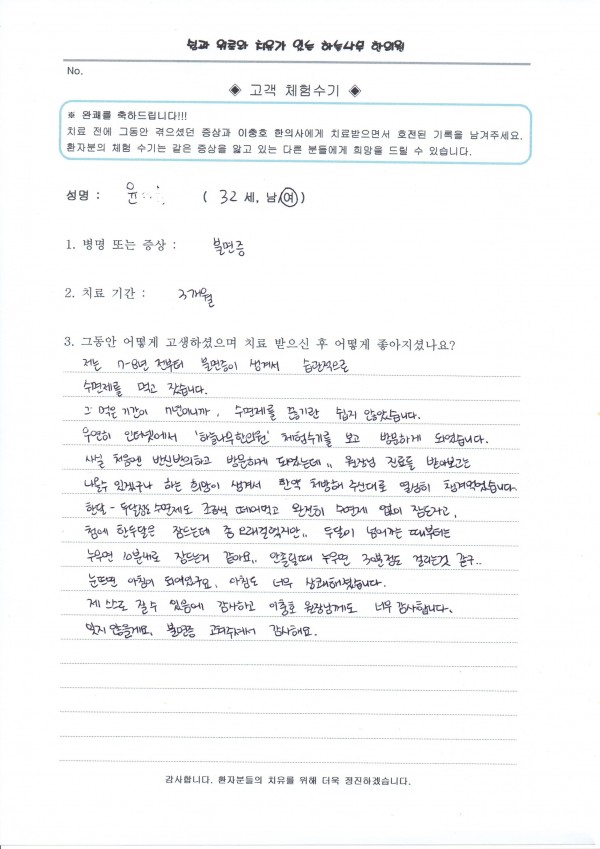 쉼과 위로와 치유가 있는 하늘나무 한의원
No.
◈ 고객 체험수기 ◈
※ 완쾌를 축하드립니다!!!
치료 전에 그동안 겪으셨던 증상과 이충호 한의사에게 치료받으면서 호전된 기록을 남겨주세요.
환자분의 체험 수기는 같은 증상을 앓고 있는 다른 분들에게 희망을 드릴 수 있습니다.
성명 : 윤 ( 32 세, 남/여 )
1. 병명 또는 증상 : 불면증
2. 치료 기간 : 3개월
3. 그동안 어떻게 고생하셨으며 치료 받으신 후 어떻게 좋아지셨나요?
저는 7-8년 전부터 불면증이 생겨서 습관적으로
수면제를 먹고 잤습니다.
그 먹은 기간이 7년이니까, 수면제를 끊기란 쉽지 않았습니다.
우연히 인터넷에서 '하늘나무한의원' 체험수기를 보고 방문하게 되었습니다.
사실 처음엔 반신반의하고 방문하게 되었는데,, 원장님 진료를 받아보고는
나을수 있겠구나 하는 희망이 생겨서 한약 처방해 주신대로 열심히 챙겨먹었습니다.
한달 - 두달정도 수면제도 조금씩 떼어먹고 완전히 수면제 없이 잠도자고,
첨에 한두달은 잠드는데 좀 오래걸렸지만,, 두달이 넘어가는 때부터는
누우면 10분내로 잠드는거 같아요,, 안졸릴때 누우면 30분정도 걸리는것 같구..
눈뜨면 아침이 되어있구요, 아침도 너무 상쾌해졌습니다.
제 스스로 잘수 있음에 감사하고 이충호 원장님께도 너무 감사합니다.
잊지 않을게요, 불면증 고쳐주셔서 감사해요.
감사합니다. 환자분들의 치유를 위해 더욱 정진하겠습니다.